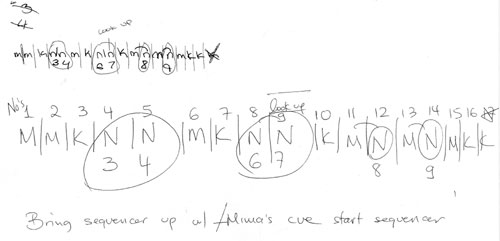 look up
m|m|k|N|N|m|k|N|N|k|m|N|m|N|m|k|k
3 4 6 7 8 9
look up
No's 1 2 3 4 5 6 7 8 9 10 11 12 13 14 15 16
M|M|K|N|N|m|K|N|N|K|M|N|M|N|M|K|K
3 4 6 7 8 9
Bring sequencer up w/ Mima's cue start sequencer